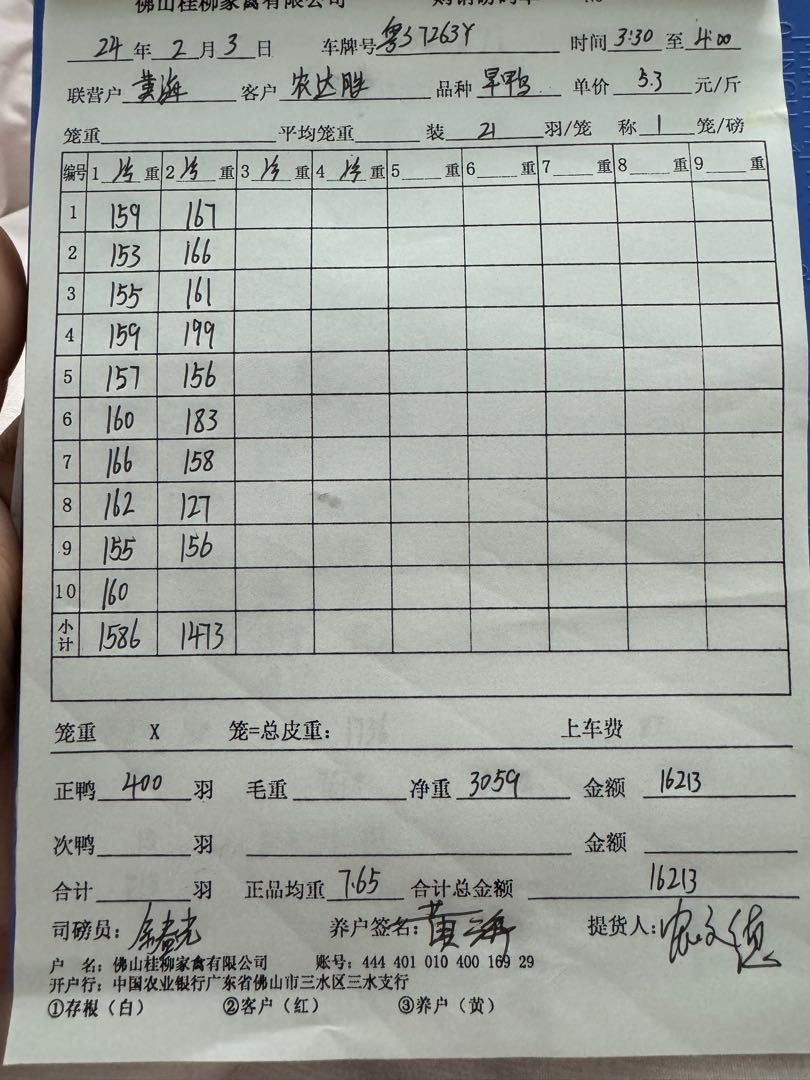 佛山桂柳家禽有限公司
24年2月3日 车牌号 粤S7263Y 时间3:30至4:00
联营户 黄海 客户 农达胜 品种 旱鸭 单价 5.3 元/斤
笼重 平均笼重 装 21 羽/笼 称 1 笼/磅
编号 1 净 重 2 净 重 3 净 重 4 净 重 5 重 6 重 7 重 8 重 9 重
1 159 167
2 153 166
3 155 161
4 159 199
5 157 156
6 160 183
7 166 158
8 162 127
9 155 156
10 160
小计 1586 1473
笼重 X 笼=总皮重: 上车费
正鸭 400 羽 毛重 净重 3059 金额 16213
次鸭 羽 金额
合计 羽 正品均重 7.65 合计总金额 16213
司磅员: 养户签名: 黄海 提货人:
户 名: 佛山桂柳家禽有限公司 账号: 444 401 010 400 169 29
开户行: 中国农业银行广东省佛山市三水区三水支行
①存根(白) ②客户(红) ③养户(黄)